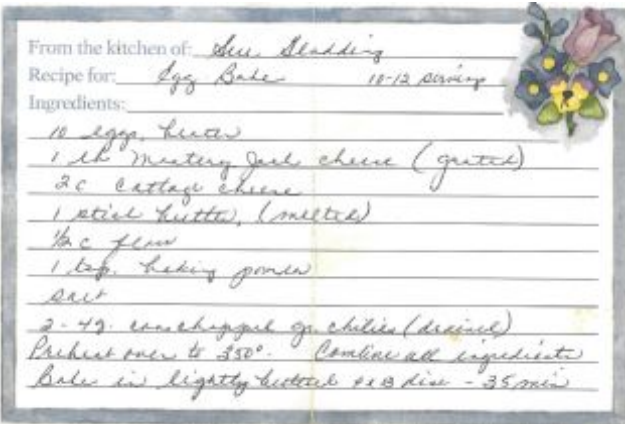 From the kitchen of: Sue Gladding
Recipe for: Egg Bake 10-12 servings
Ingredients:
10 eggs, beaten
1 lb Monterey Jack cheese (grated)
2 c cottage cheese
1 stick butter, (melted)
1/2 c flour
1 tsp. baking powder
salt
2 - 4 oz. cans chopped gr. chilies (drained)
Preheat oven to 350°. Combine all ingredients
Bake in lightly buttered 9x13 dish - 35 min